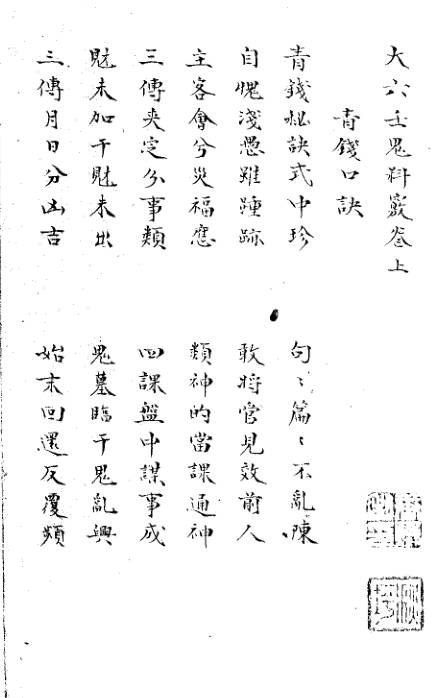 大六壬鬼料竅卷上
青錢口訣
青錢秘訣式中珍 句〻篇〻不亂陳
自愧淺愚難踵跡 敢將管見效前人
主客會兮災福應 類神的當課通神
三傳夾定分事類 四課盤中謀事成
財未加干財未出 鬼墓臨干鬼亂興
三傳月日分凶吉 始末回還反覆頻